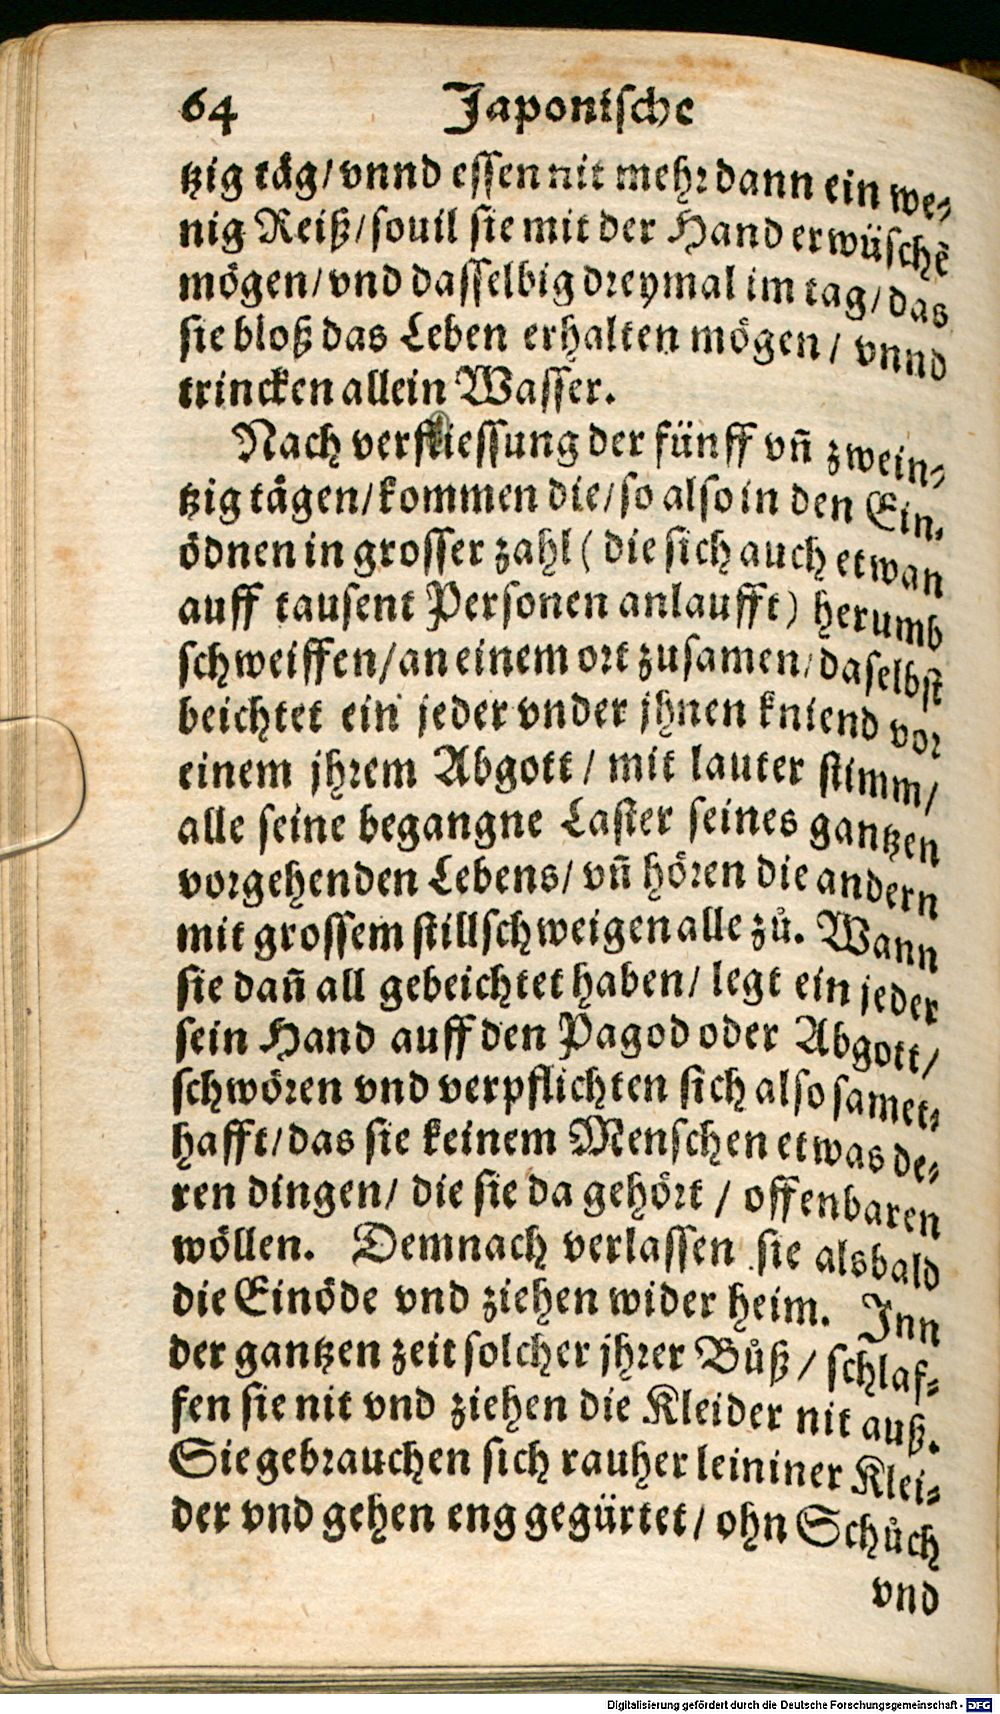 64 Japonische
tzig täg/vnnd essen nit mehr dann ein we-
nig Reiß/souil sie mit der Hand erwüschē
mögen/vnd dasselbig dreymal im tag/das
sie bloß das Leben erhalten mögen/ vnnd
trincken allein Wasser.
Nach verfliessung der fünff vñ zwein-
tzig tägen/kommen die/so also in den Ein-
ödnen in grosser zahl (die sich auch etwan
auff tausent Personen anlaufft) herumb
schweiffen/an einem ort zusamen/daselbst
beichtet ein jeder vnder jhnen kniend vor
einem jhrem Abgott/ mit lauter stimm/
alle seine begangne Laster seines gantzen
vorgehenden Lebens/ vñ hören die andern
mit grossem stillschweigen alle zů. Wann
sie dañ all gebeichtet haben/ legt ein jeder
sein Hand auff den Pagod oder Abgott/
schwören vnd verpflichten sich also samet-
hafft/das sie keinem Menschen etwas de-
ren dingen/ die sie da gehört/ offenbaren
wöllen. Demnach verlassen sie alsbald
die Einöde vnd ziehen wider heim. Inn
der gantzen zeit solcher jhrer Bůß/ schlaf-
fen sie nit vnd ziehen die Kleider nit auß.
Sie gebrauchen sich rauher leininer Klei-
der vnd gehen eng gegürtet/ ohn Schůch
vnd
Digitalisierung gefördert durch die Deutsche Forschungsgemeinschaft - DFG